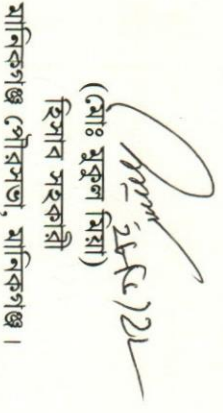 (মোঃ মুকুল মিয়া)
হিসাব সহকারী
মানিকগঞ্জ পৌরসভা, মানিকগঞ্জ।